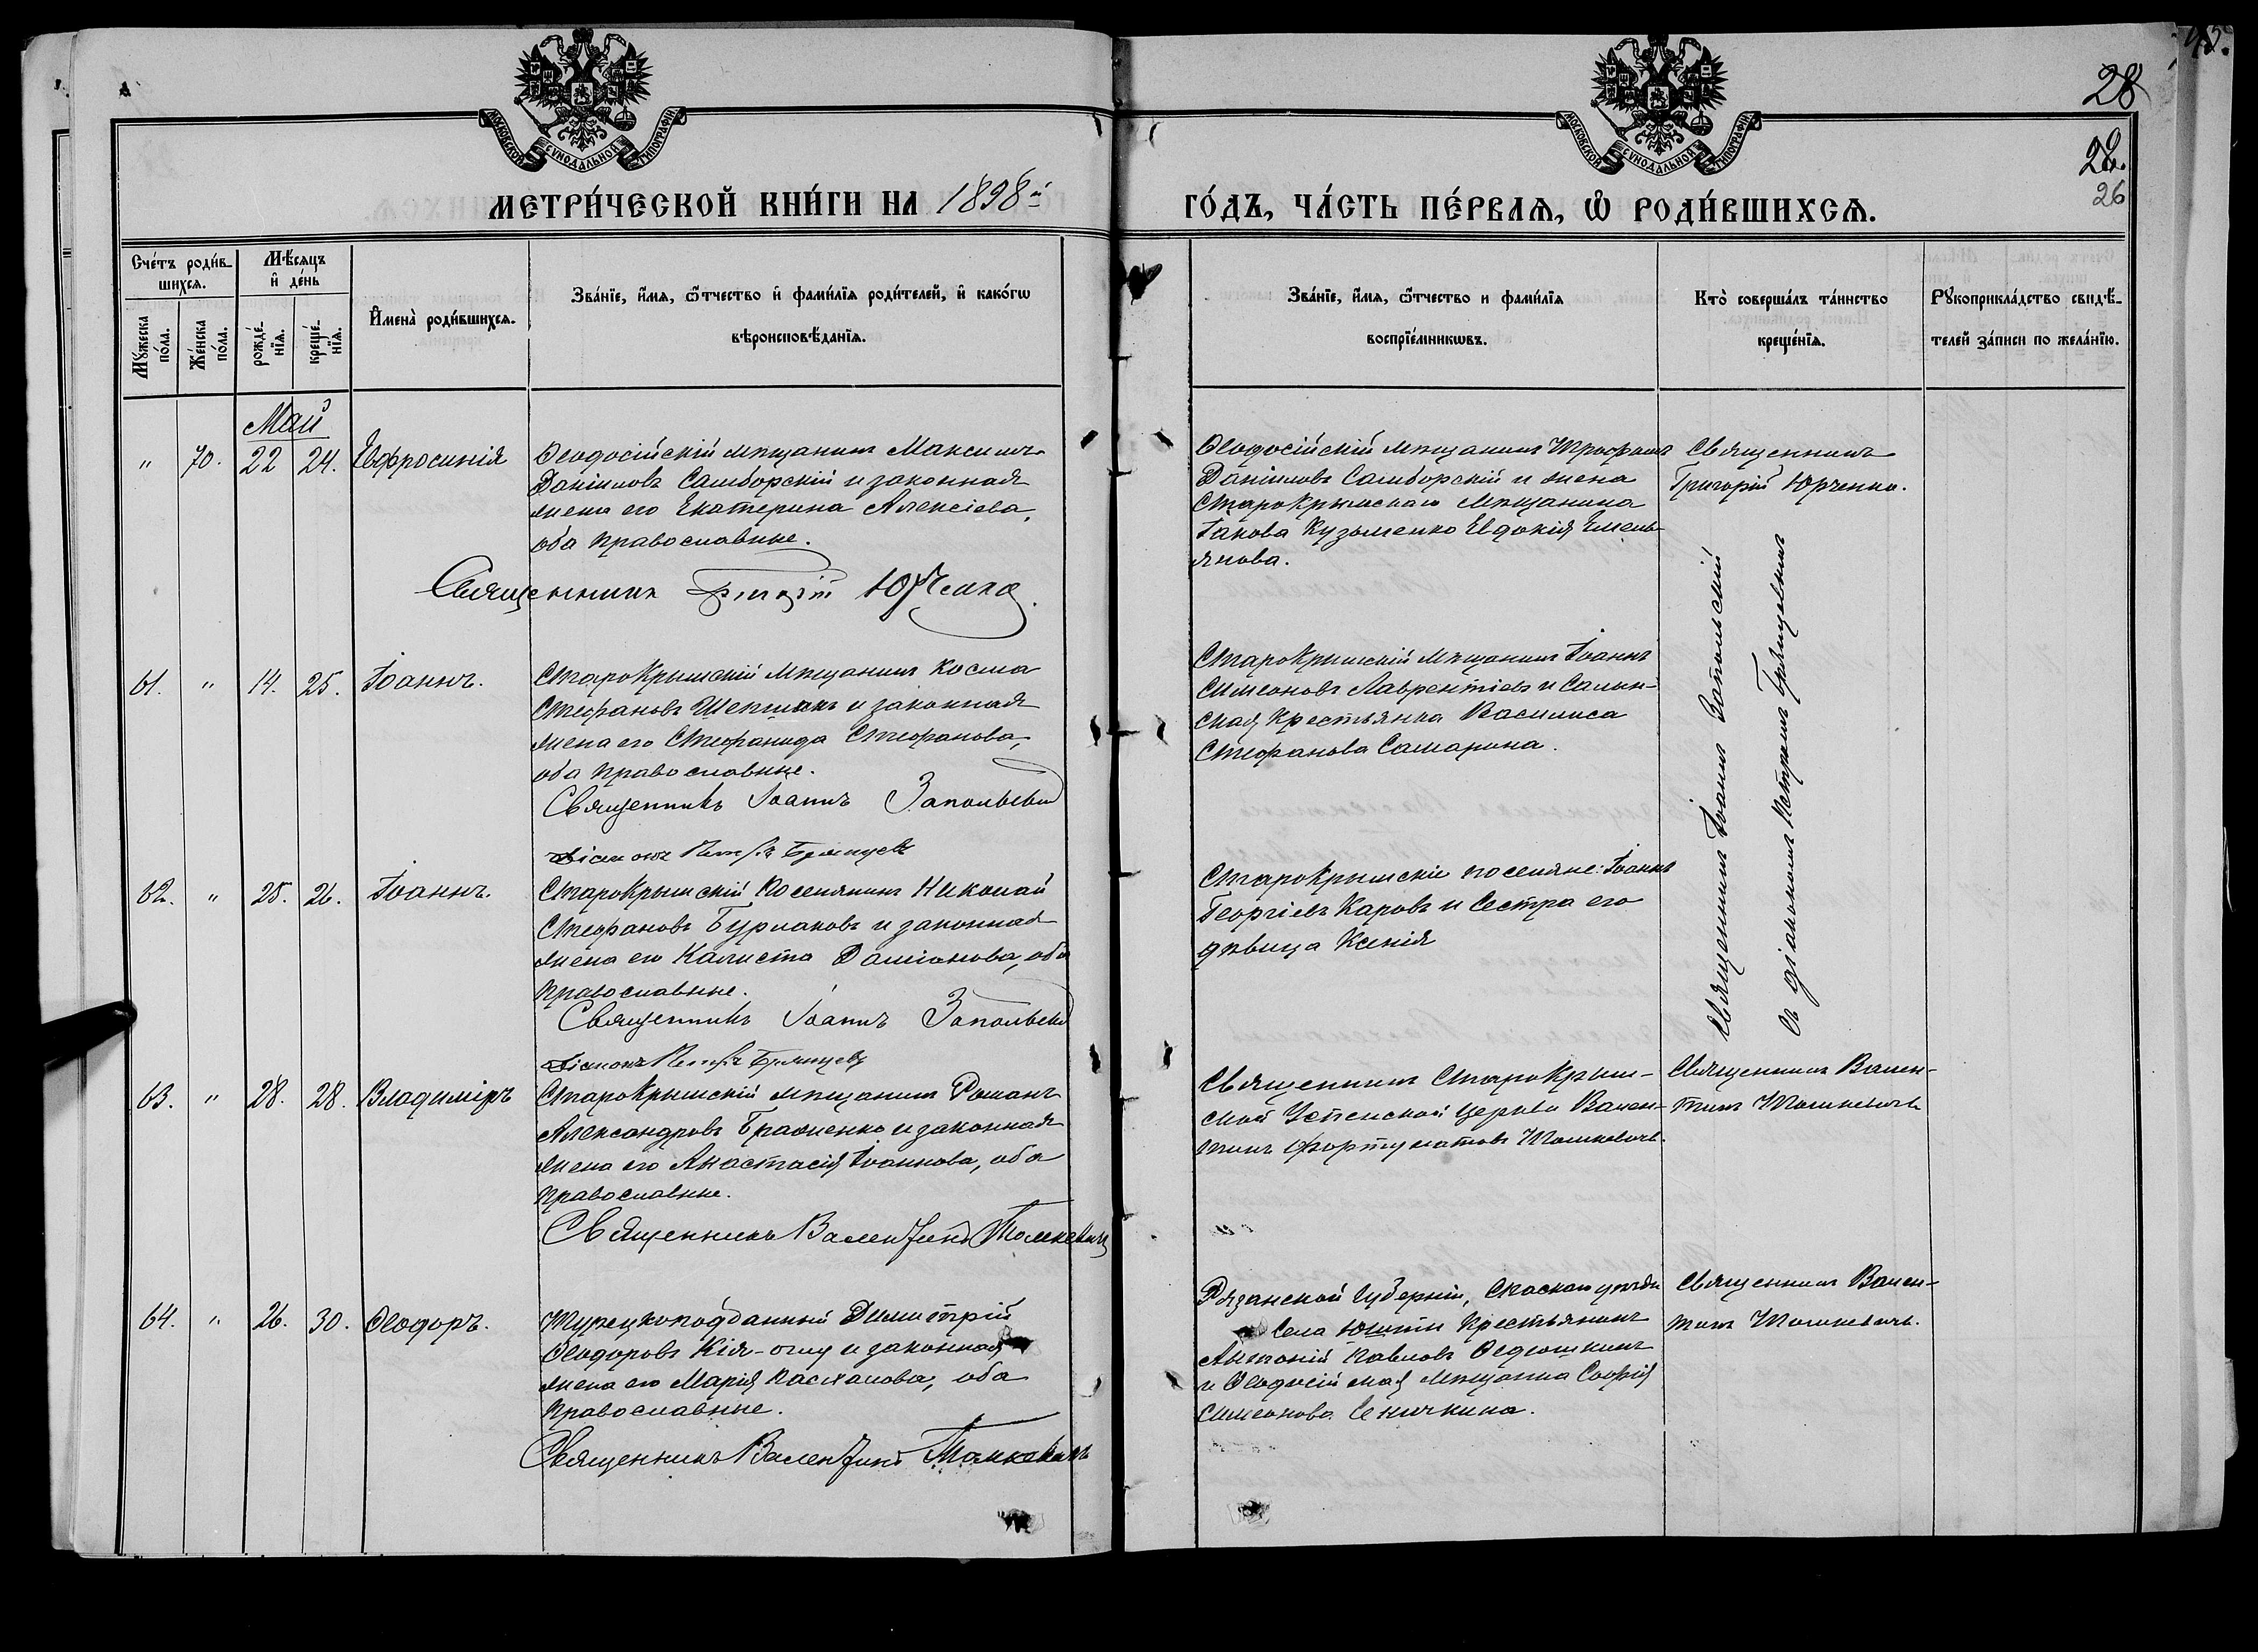 28
28.
26
МОСКОВСКОЙ СѴНОДАЛЬНОЙ ТИПОГРАФІИ
МОСКОВСКОЙ СѴНОДАЛЬНОЙ ТИПОГРАФІИ
МЕТРИ́ЧЕСКОЙ КНИ́ГИ НА 1898й
ГО́ДЪ, ЧА́СТЬ ПЕ́РВАЯ, Ѡ҆ РОДИ́ВШИХСЯ.
Сче́тъ роди́в-
шихся.
Мꙋ́жеска по́ла.
Же́нска по́ла.
Мѣ́сяцъ
и҆ де́нь
рожде́-
нїя.
креще́-
нїя.
И҆мена̀ роди́вшихся.
Зва́нїе, и҆́мя, ѻ҆́тчество и҆ фами́лїя роди́телей, и҆ како́гѡ
вѣроисповѣ́данїя.
Зва́нїе, и҆́мя, ѻ҆́тчество и фами́лїя
воспрїе́мникѡвъ.
Кто̀ соверша́лъ та́инство
креще́нїя.
Рꙋкоприкла́дство свидѣ́-
телей за́писи по жела́нїю.
Май
" 70. 22 24. Евфросинія
Ѳеодосійскій мѣщанинъ Максимъ
Даніиловъ Самборскій и законная
жена его Екатерина Алексіева,
оба православные.
Священникъ Григорій Юрченко.
Ѳеодосійскій мѣщанинъ Трофимъ
Даніиловъ Самборскій и жена
Старокрымскаго мѣщанина
Іакова Кузьменко Евдокія Емель-
янова.
Священникъ
Григорій Юрченко.
61. " 14. 25. Іоаннъ.
Старокрымскій мѣщанинъ Косма
Стефановъ и законная
жена его Стефанида Стефанова,
оба православные.
Священникъ Іоаннъ Запольскій
Діаконъ Петръ Брянцевъ
Старокрымскій мѣщанинъ Іоаннъ
Симеоновъ Лаврентіевъ и
ская крестьянка Василиса
Стефанова Самарина.
Священникъ Іоаннъ Запольскій
съ діакономъ Петромъ Брянцевымъ
62. " 25. 26. Іоаннъ.
Старокрымскій поселянинъ Николай
Стефановъ Бурлаковъ и законная
жена его Калиста Даміанова, оба
православные.
Священникъ Іоаннъ Запольскій
Діаконъ Петръ Брянцевъ
Старокрымскіе поселяне: Іоаннъ
Георгіевъ Каровъ и сестра его
дѣвица Ксенія
63. " 28. 28. Владиміръ
Старокрымскій мѣщанинъ Романъ
Александровъ Браженко и законная
жена его Анастасія Іоаннова, оба
православные.
Священникъ Валентинъ Томкевичъ
Священникъ Старокрым-
ской Успенской церкви Вален-
тинъ Фортунатовъ Томкевичъ.
Священникъ Вален-
тинъ Томкевичъ
64. " 26. 30. Ѳеодоръ.
Турецкоподданный Димитрій
Ѳеодоровъ Кія-оглу и законная
жена его Марія, оба
православные.
Священникъ Валентинъ Томкевичъ
Рязанской губерніи, уѣзда
села крестьянинъ
Антоній Павловъ Ѳедюшкинъ
и Ѳеодосійская мѣщанка Софія
Симеонова.
Священникъ Вален-
тинъ Томкевичъ.